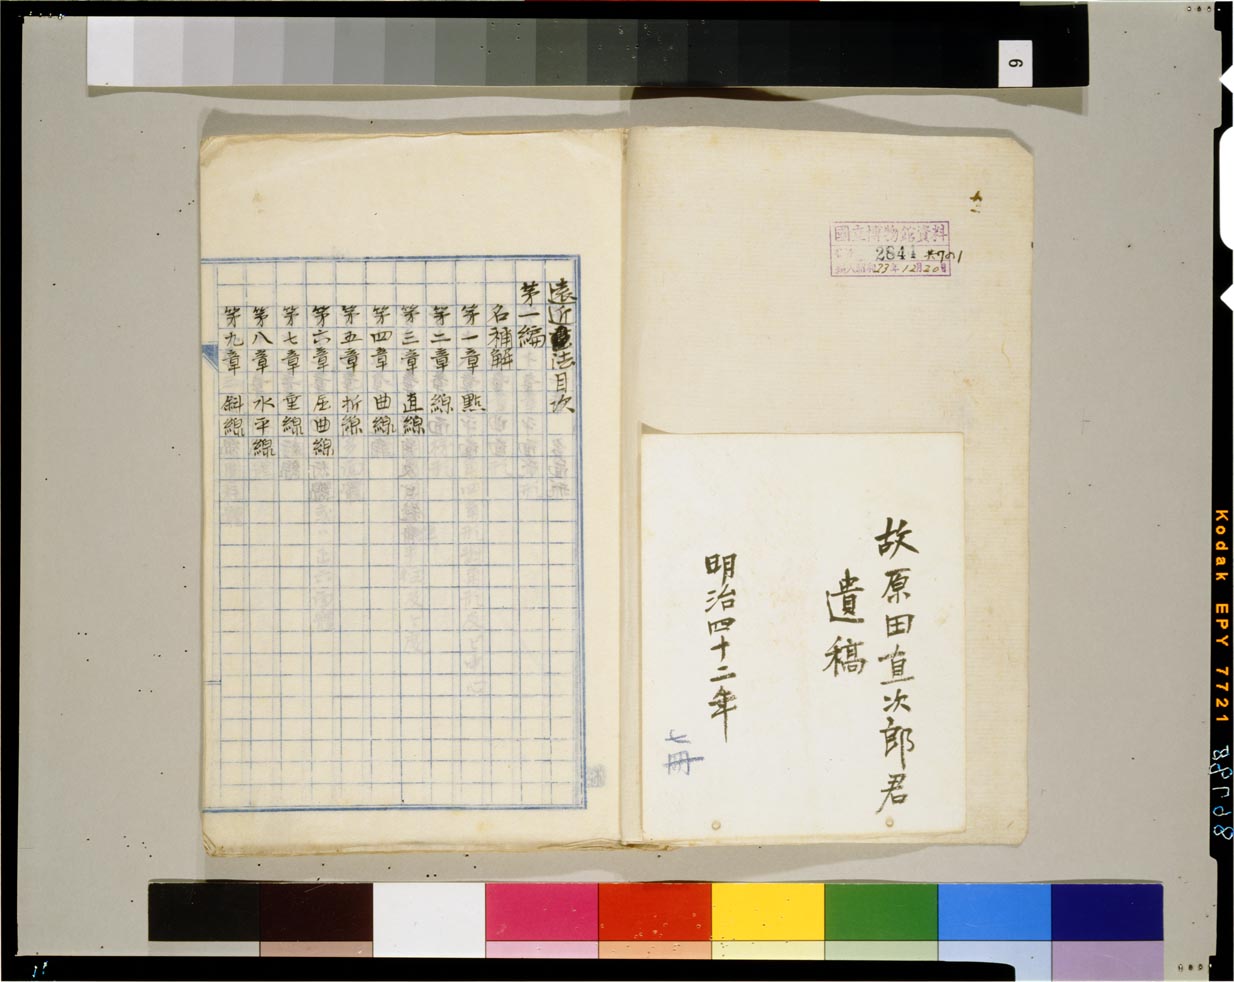 國立博物館資料
2841 共7の1
購入昭和23年12月20日
故原田直次郎君
遺稿
明治四十二年
七冊
遠近法目次
第一編
名稱解
第一章 點
第二章 線
第三章 直線
第四章 曲線
第五章 折線
第六章 屈曲線
第七章 垂線
第八章 水平線
第九章 斜線
6
Kodak EPY 7721